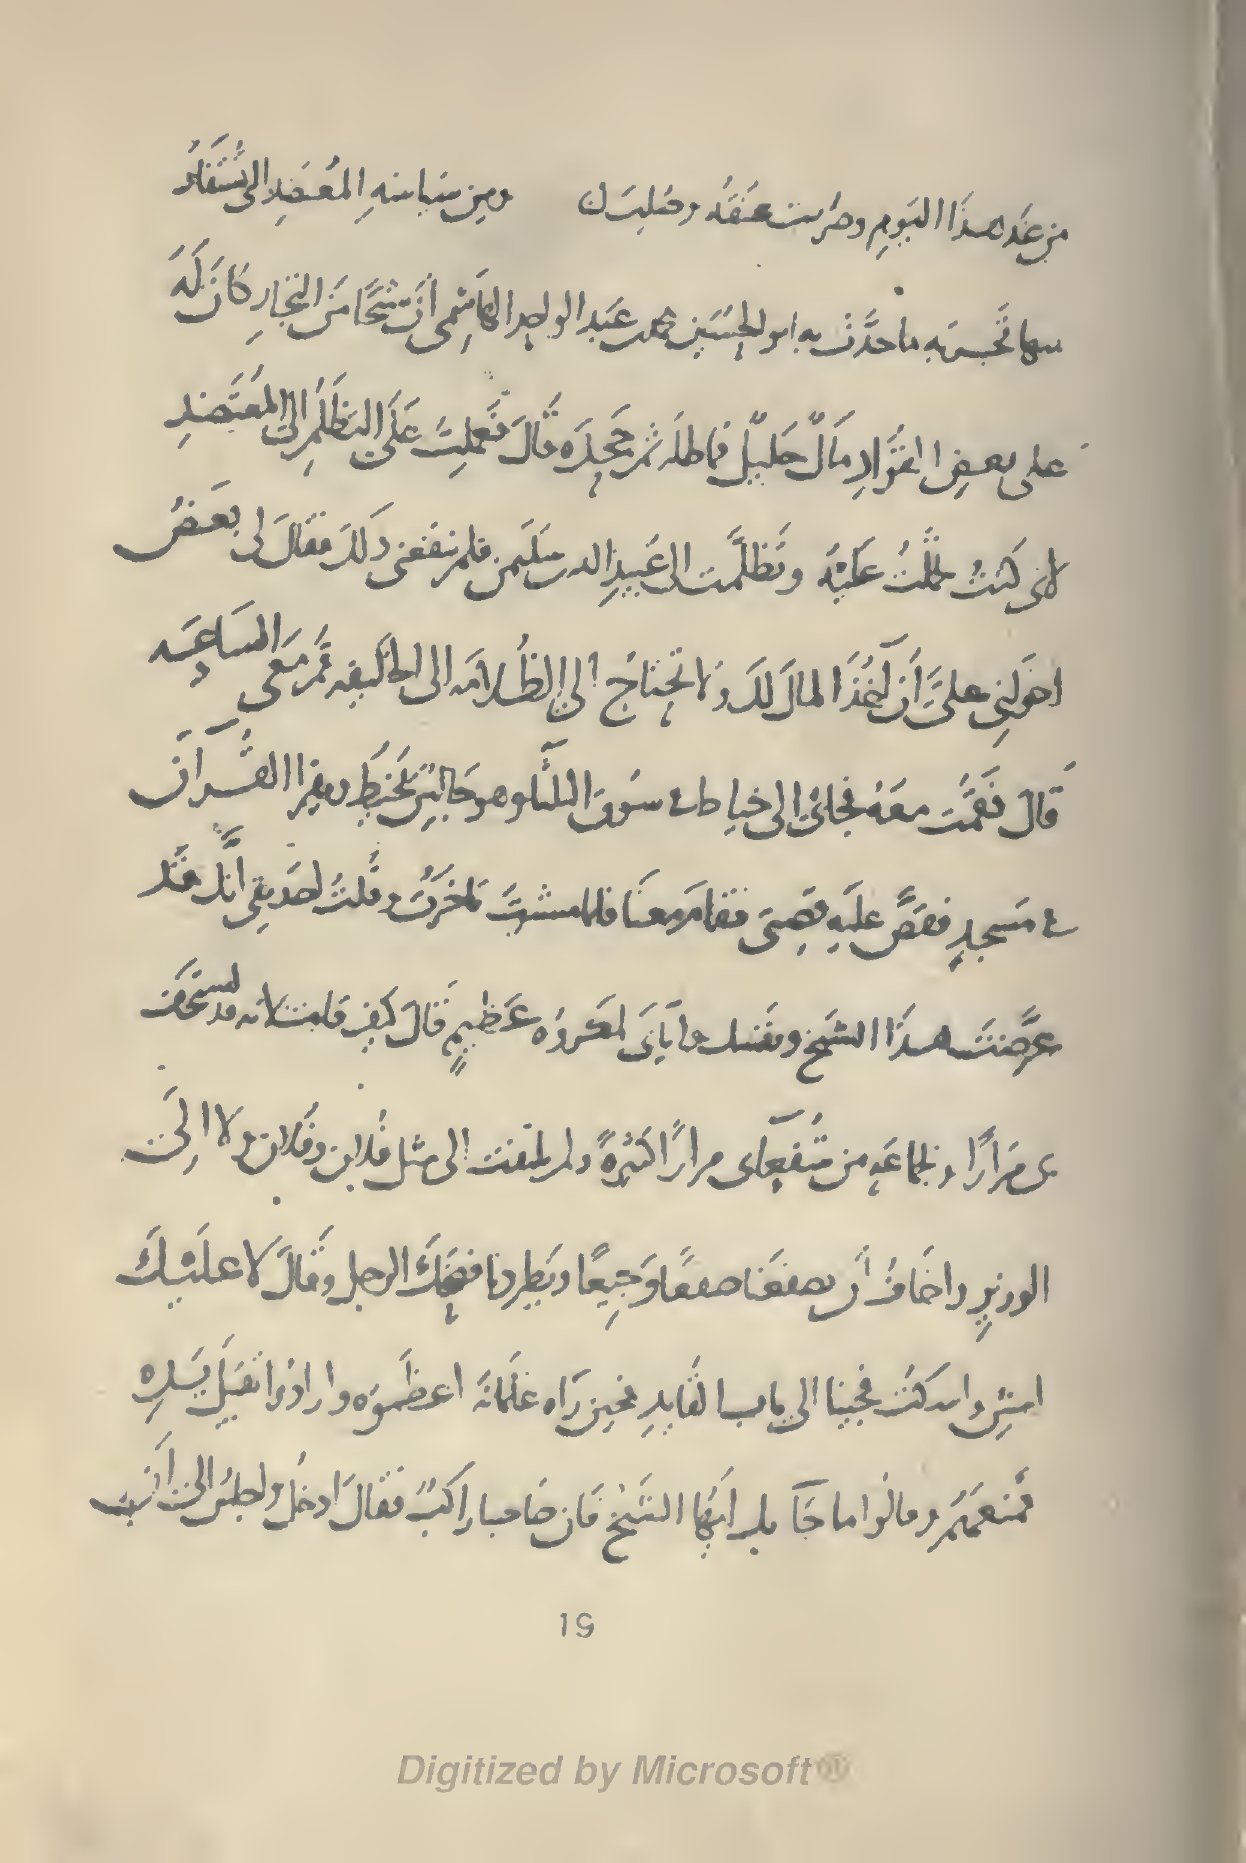 من غد هذا اليوم وضربت عنقه وصلبت ومن سياسة المعتضد التى
ما حدث به ابو الحسين محمد بن عبد الواحد الهاشمى أن شيخا من التجار كان له
على بعض القواد مال جليل فماطله ثم جحده قال فعملت على التظلم إلى المعتضد
لانى كنت تحملت عليه وتظلمت الى عبيد الله بن سليمن فلم ينفعنى ذلك فقال لى بعض
اخوانى على أن آخذ المال لك ولا تحتاج إلى الظلامة الى الخليفة قم معى الساعه
قال فقمت معه فجائى الى خياط فى سوق الثلثا وهو جالس يخيط ويقرا القرآن
فى مسجد فقص عليه قصتى فقام معنا فلما مشيت تاخرت وقلت لصديقى انك قد
عرضت هذا الشيخ ونفسك واياى لمكروه عظيم قال كيف قلت لانه قد استخف
بى مرارا وبجماعه من شفعاى مرارا كثيرة ولم يلتفت الى مثل فلان وفلان ولا الى
الوزير واخاف أن يصفعنا صفعا وجيعا ويطردنا فضحك الرجل وقال لا عليك
امش واسكت فجينا الى باب القايد فحين راه غلمانه اعظموه وارادوا تقبيل يده
فمنعهم وقالوا ما جآ بك ايها الشيخ فان صاحبنا راكب فقال ادخل واجلس الى أن
19
Digitized by Microsoft®